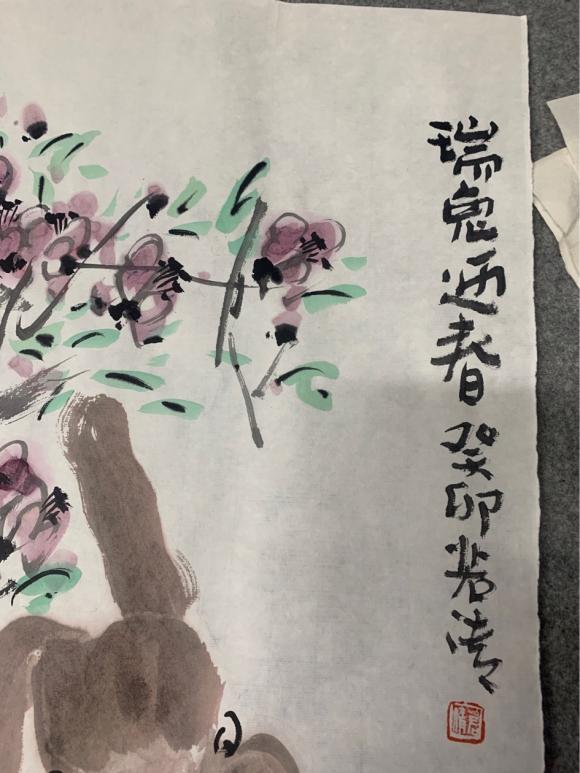 瑞兔迎春癸卯岩涛